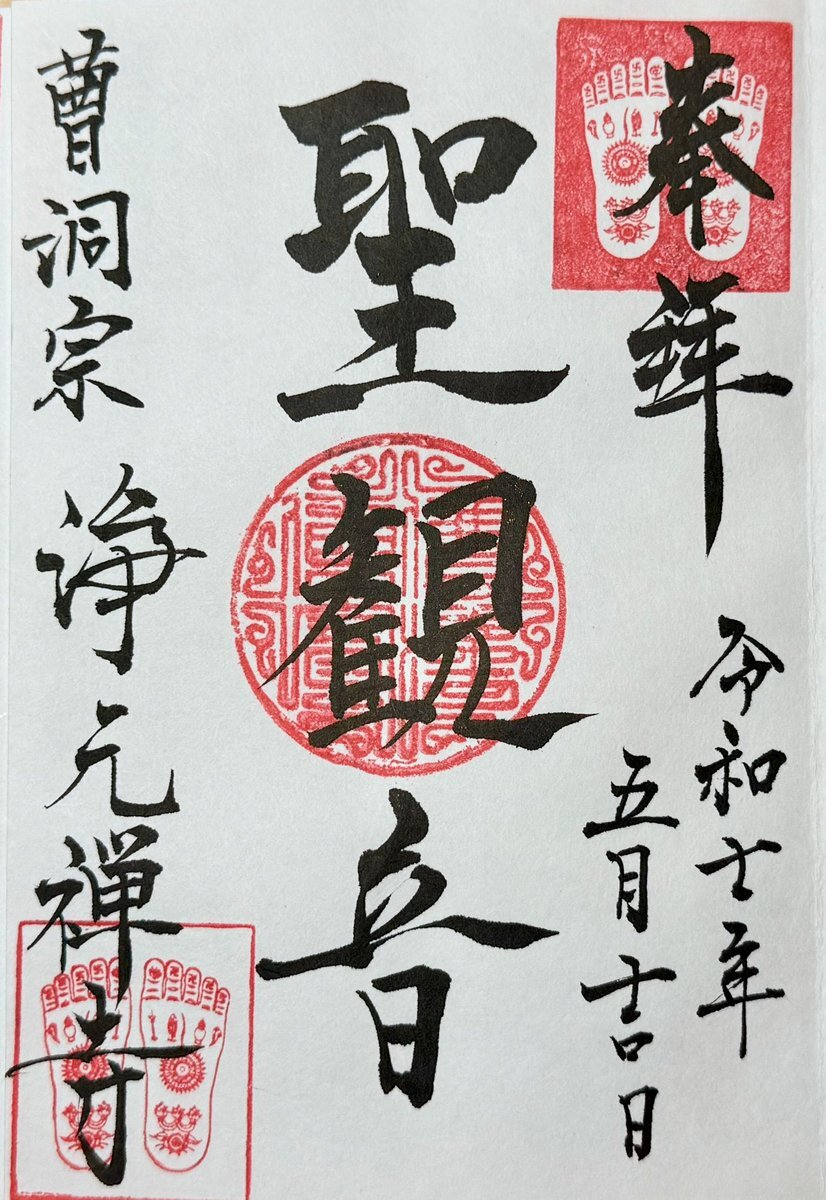 奉拝
令和七年
五月吉日
聖観音
曹洞宗 浄元禅寺